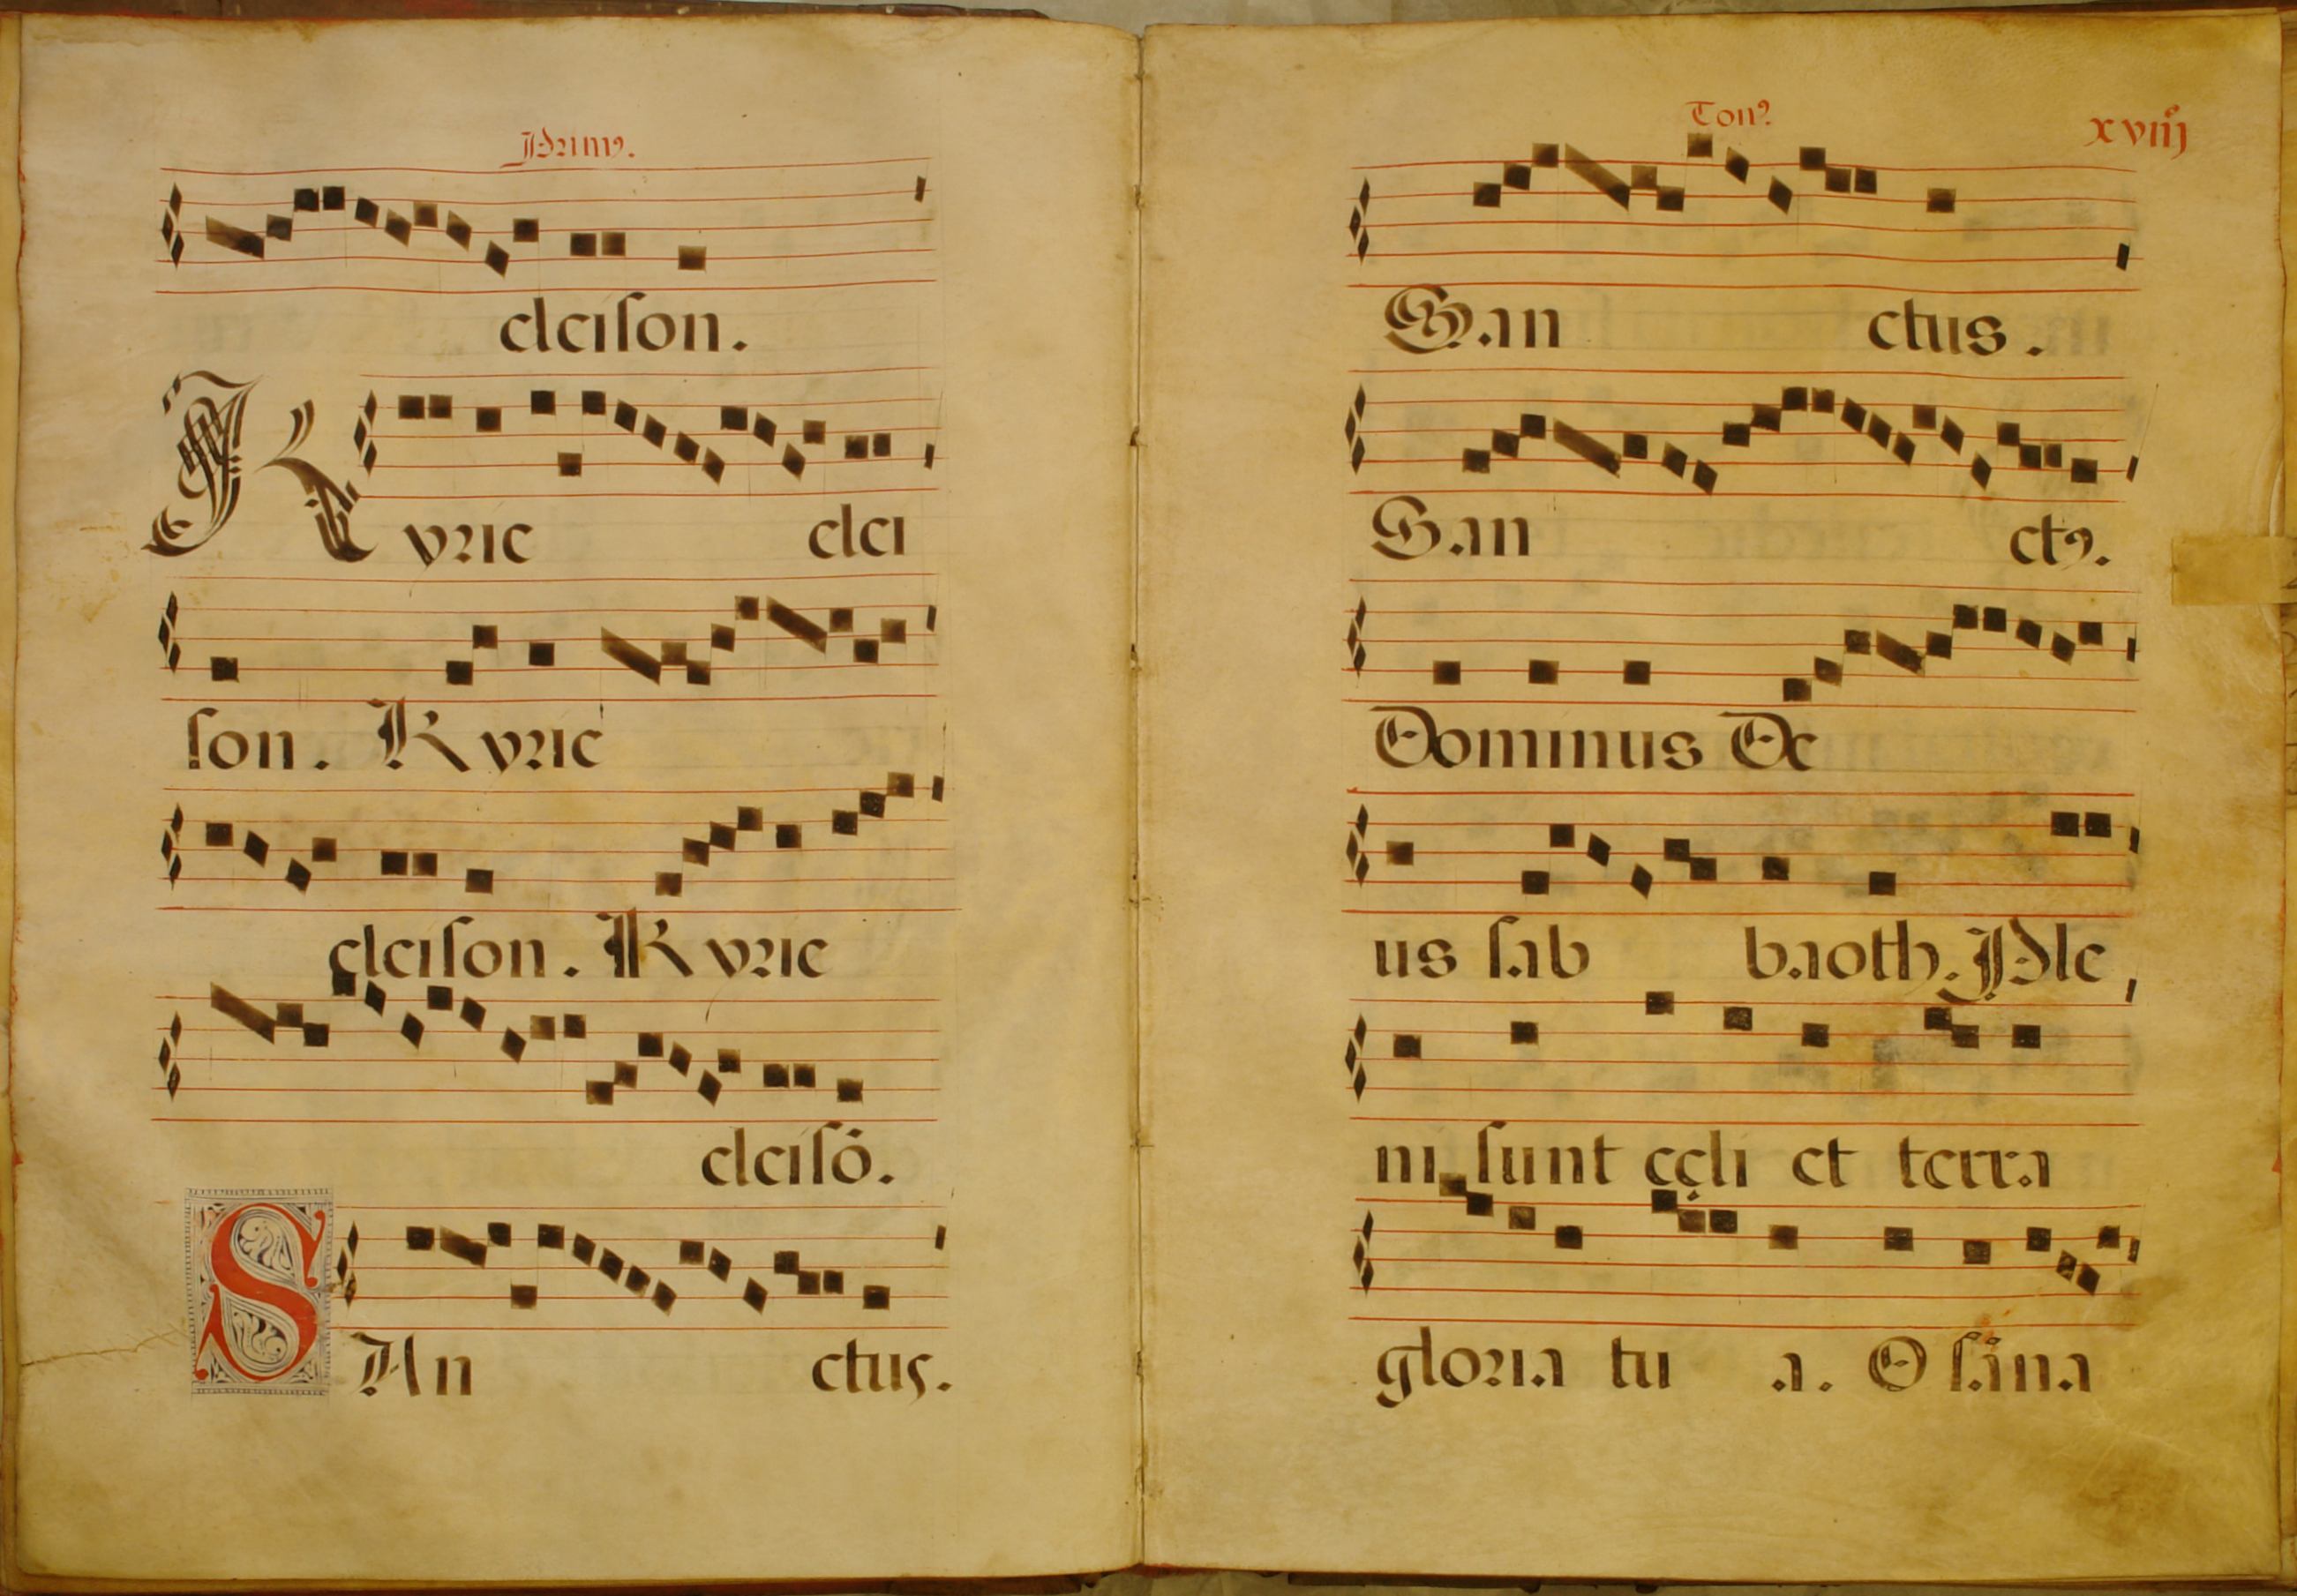 Primꝰ.
eleiſon.
Kyrie elei
ſon. Kyrie
eleiſon. Kyrie
eleiſō.
SAn ctus.
Tonꝰ
xviiij
San ctus.
San ctꝰ.
Dominus De
us ſab baoth. Ple
ni ſunt cęli et terra
gloria tu a. O ſāna